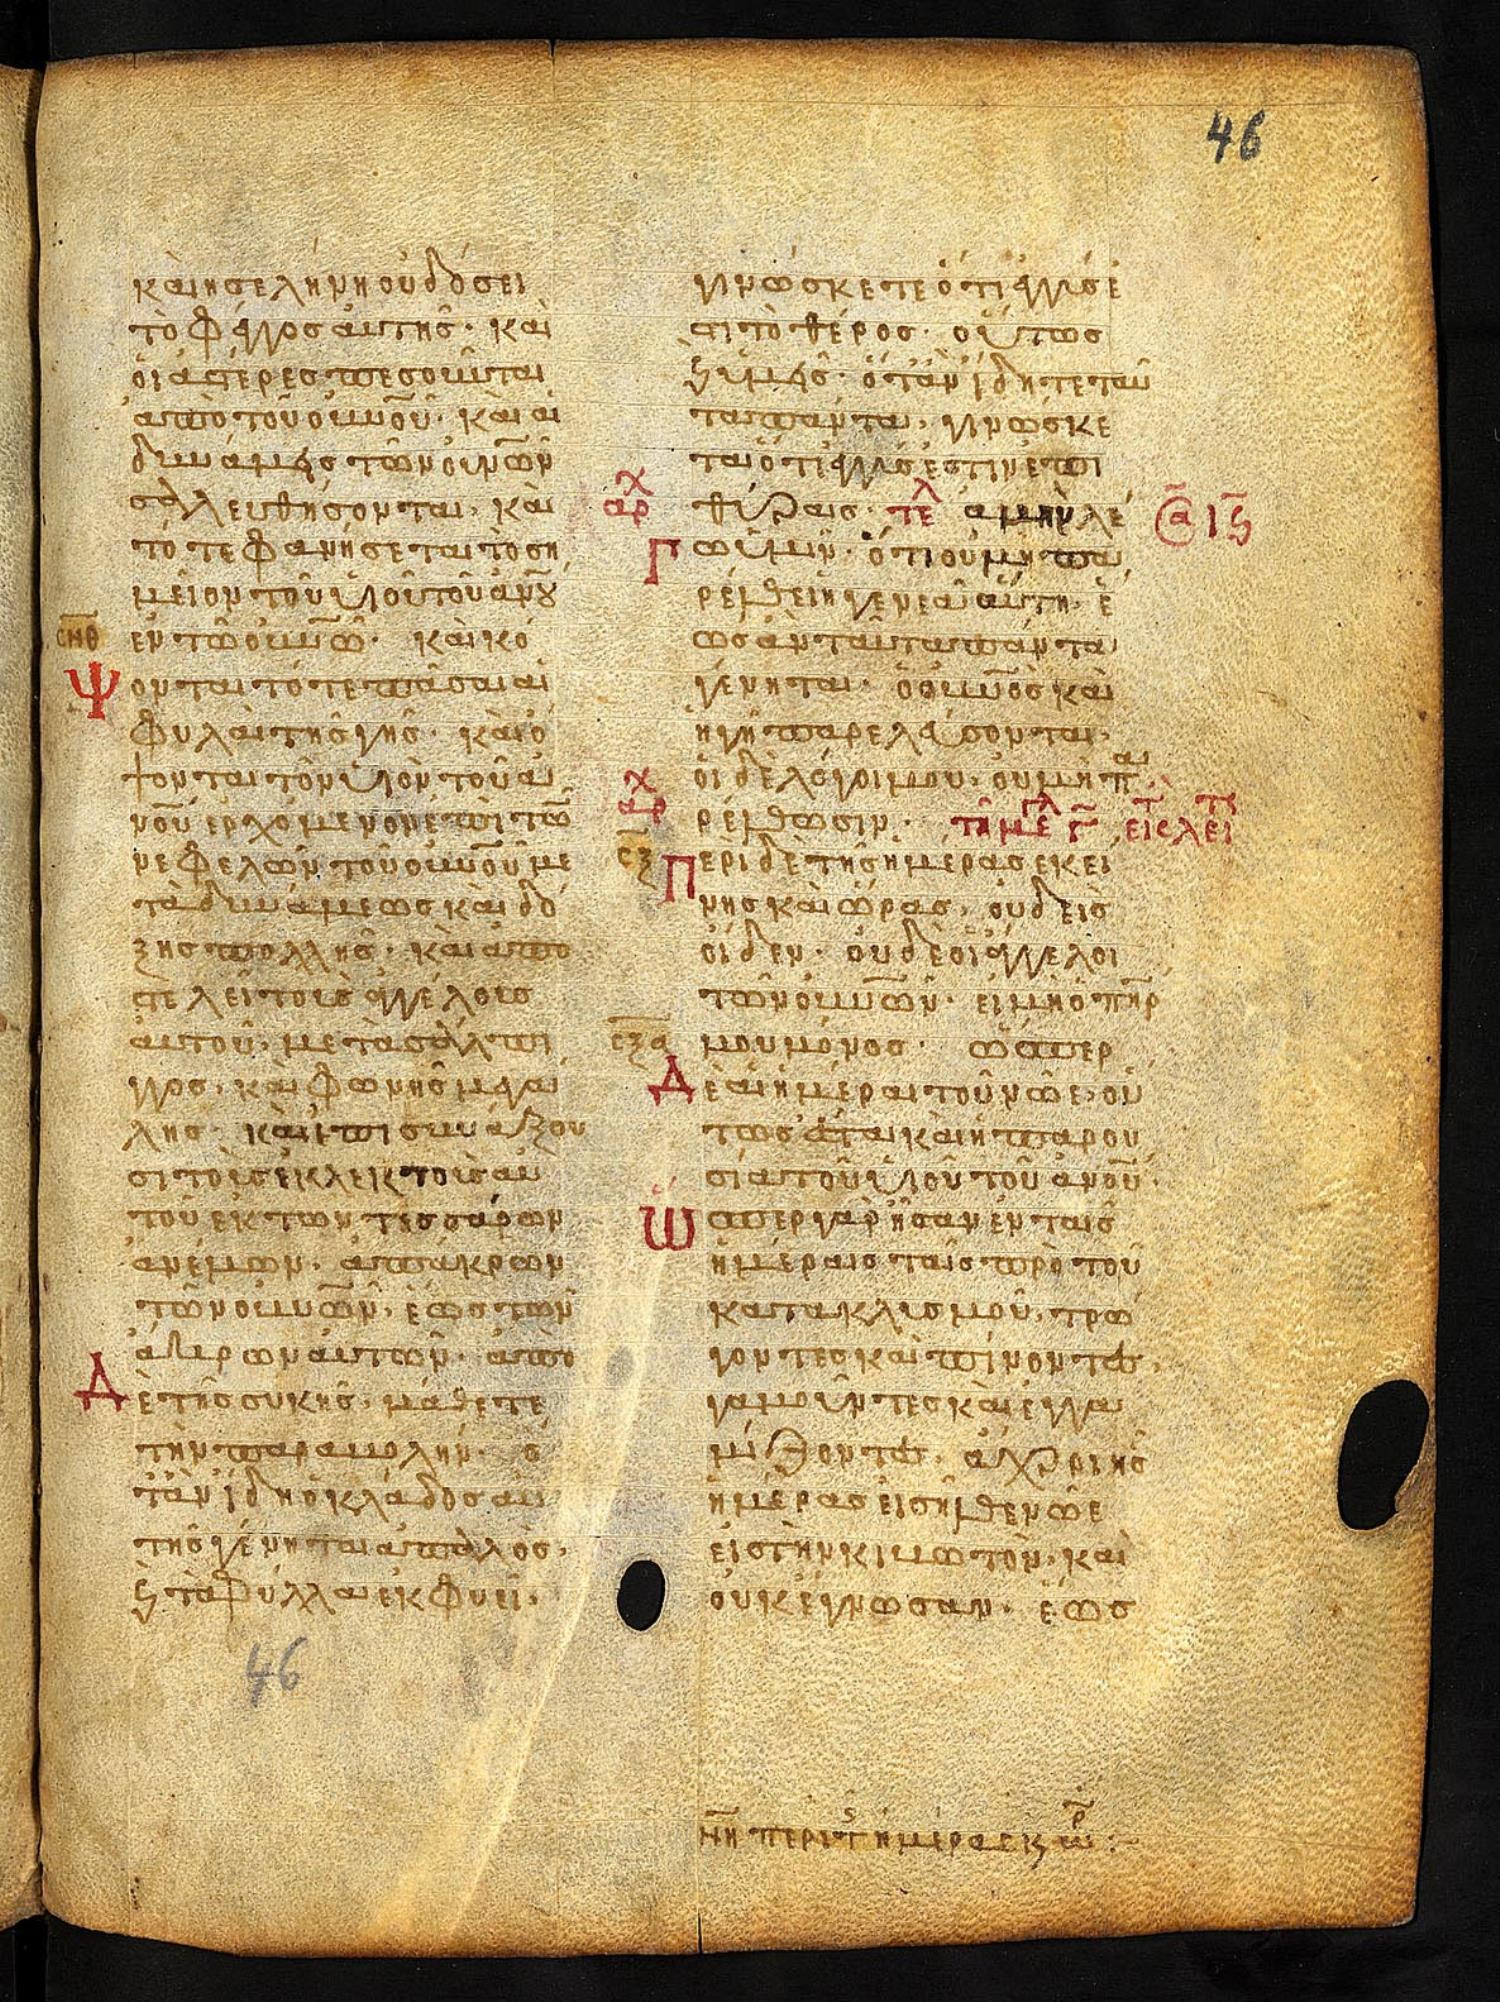 46
καὶ ἡ σελήνη οὐ δώσει
τὸ φέγγος αὐτῆς· καὶ
οἱ ἀστέρες πεσοῦνται
ἀπὸ τοῦ οὐνοῦ· καὶ αἱ
δυνάμεις τῶν οὐνῶν
σαλευθήσονται· καὶ
τότε φανήσεται τὸ ση
μεῖον τοῦ υἱοῦ τοῦ ἀνου
σνθ ἐν τῶ οὐνῶ· καὶ κό
Ψονται τότε πᾶσαι αἱ
φυλαὶ τῆς γῆς· καὶ ὄ
ψονται τὸν υἱὸν τοῦ ἀ
νοῦ ἐρχόμενον ἐπὶ τῶ
νεφελῶν τοῦ οὐνοῦ με
τὰ δυνάμεως καὶ δό
ξης πολλῆς· καὶ ἀπο
στελεῖ τοὺς ἀγγέλους
αὐτοῦ, μετὰ σάλπι
γγος, καὶ φωνῆς μεγά
λης· καὶ ἐπισυνάξου
σι τοὺς ἐκλεκτοὺς αὐ
τοῦ ἐκ τῶν τεσσάρων
ἀνέμων· ἀπ' ἄκρων
τῶν οὐνῶν, ἕως τῶν
ἄκρων αὐτῶν· ἀπὸ
Δὲ τῆς συκῆς, μάθετε
τὴν παραβολήν· ὅ
τὰν ἴδη ὁ κλάδος αὐ
τῆς γένηται ἁπαλὸς,
ϗ τὰ φύλλα ἐκφυεῖ·
46
γινώσκετε ὅτι ἐγγὺς ἐ
στι τὸ θέρος· οὕτως
ϗ ὑμεῖς· ὅταν ἴδητε ταῦ
τα πάντα, γινώσκε
ται ὅτι ἐγγύς ἐστιν ἐπὶ
αρχ θύραις· τελ ἀμὴν λέ
Γω ὑμῖν· ὅτι οὐ μὴ πα
ρέλθει ἡ γενεὰ αὕτη· ἕ
ως ἂν ταῦτα πάντα
γένηται· ὁ οὐνὸς καὶ
ἡ γῆ παρελεύσονται·
οἱ δὲ λόγοι μου, οὐ μὴ πα
αρχ ρέλθωσιν·
σξ Περὶ δὲ τῆς ἡμέρας ἐκεί
νης καὶ ὥρας, οὐδεὶς
οἶδεν· οὐδὲ οἱ ἄγγελοι
τῶν οὐνῶν· εἰ μὴ ὁ πηρ
σξα μου μόνος· ὥσπερ
Δὲ αἱ ἡμέραι τοῦ νῶε, οὕ
τως ἔσται καὶ ἡ παρου
σία τοῦ υἱοῦ τοῦ ἀνου·
Ὥσπερ γὰρ ἦσαν ἐν ταῖς
ἡμέραις ταῖς πρὸ τοῦ
κατακλυσμοῦ, τρώ
γοντες καὶ πίνοντες,
γαμοῦντες καὶ ἐγγα
μίζοντες, ἄχρι ἧς
ἡμέρας εἰσῆλθεν νῶε
εἰς τὴν κιβωτὸν, καὶ
οὐκ ἔγνωσαν· ἕως
νη περὶ τς ἡμέρας κ ωρ